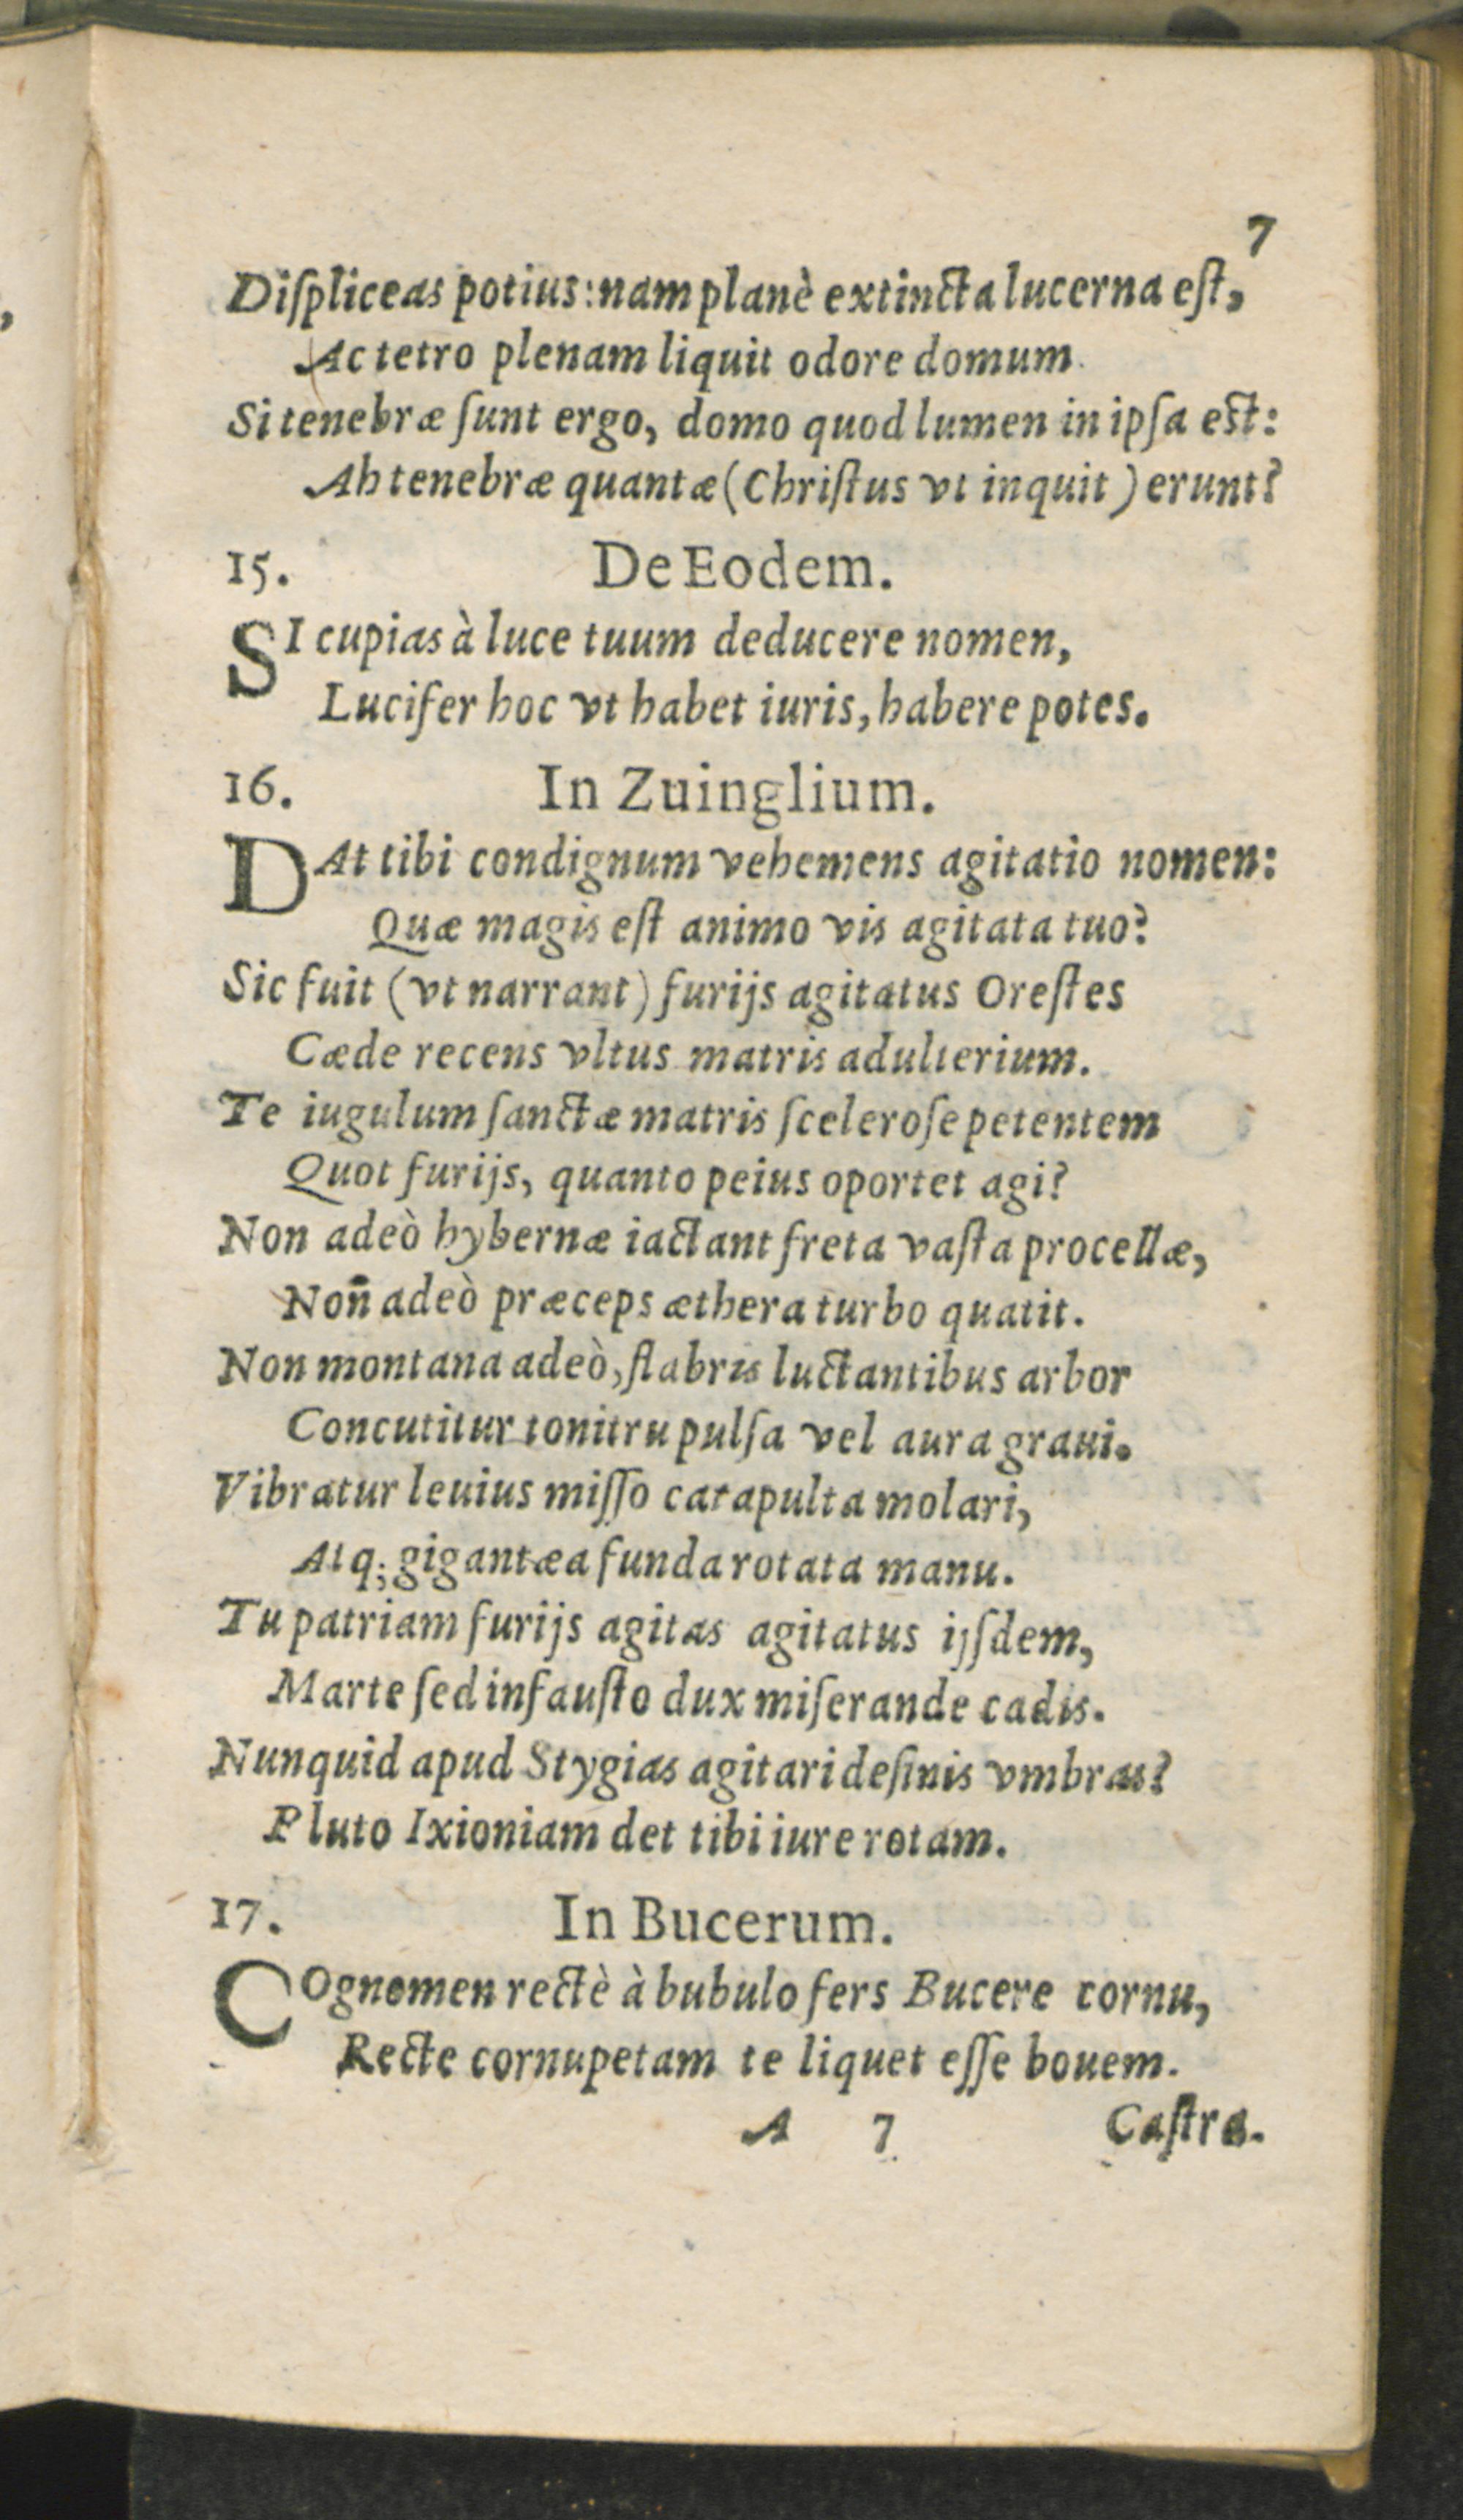 7
Diſpliceas potius: nam planè extincta lucerna eſt,
Ac tetro plenam liquit odore domum.
Si tenebræ ſunt ergo, domo quod lumen in ipſa est:
Ah tenebræ quantæ (Chriſtus vt inquit) erunt?
15. De Eodem.
SI cupias à luce tuum deducere nomen,
Lucifer hoc vt habet iuris, habere potes.
16. In Zuinglium.
DAt tibi condignum vehemens agitatio nomen:
Quæ magis eſt animo vis agitata tuo?
Sic fuit (vt narrant) furijs agitatus Oreſtes
Cæde recens vltus matris adulterium.
Te iugulum ſanctæ matris ſceleroſe petentem
Quot furijs, quanto peius oportet agi?
Non adeò hybernæ iactant freta vaſta procellæ,
Non̄ adeò præceps æthera turbo quatit.
Non montana adeò, flabris luctantibus arbor
Concutitur tonitru pulſa vel aura graui.
Vibratur leuius miſſo catapulta molari,
Atq; gigantæa funda rotata manu.
Tu patriam furijs agitas agitatus ijſdem,
Marte ſed infauſto dux miſerande cadis.
Nunquid apud Stygias agitari deſinis vmbras?
Pluto Ixioniam det tibi iure rotam.
17. In Bucerum.
COgnomen rectè à bubulo fers Bucere cornu,
Recte cornupetam te liquet eſſe bouem.
A 7 Caſtra.